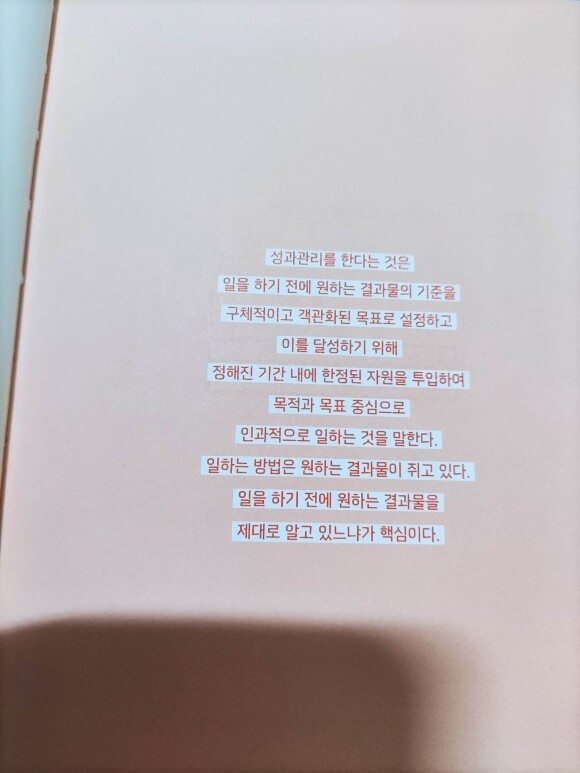 성과관리를 한다는 것은
일을 하기 전에 원하는 결과물의 기준을
구체적이고 객관화된 목표로 설정하고
이를 달성하기 위해
정해진 기간 내에 한정된 자원을 투입하여
목적과 목표 중심으로
인과적으로 일하는 것을 말한다.
일하는 방법은 원하는 결과물이 쥐고 있다.
일을 하기 전에 원하는 결과물을
제대로 알고 있느냐가 핵심이다.